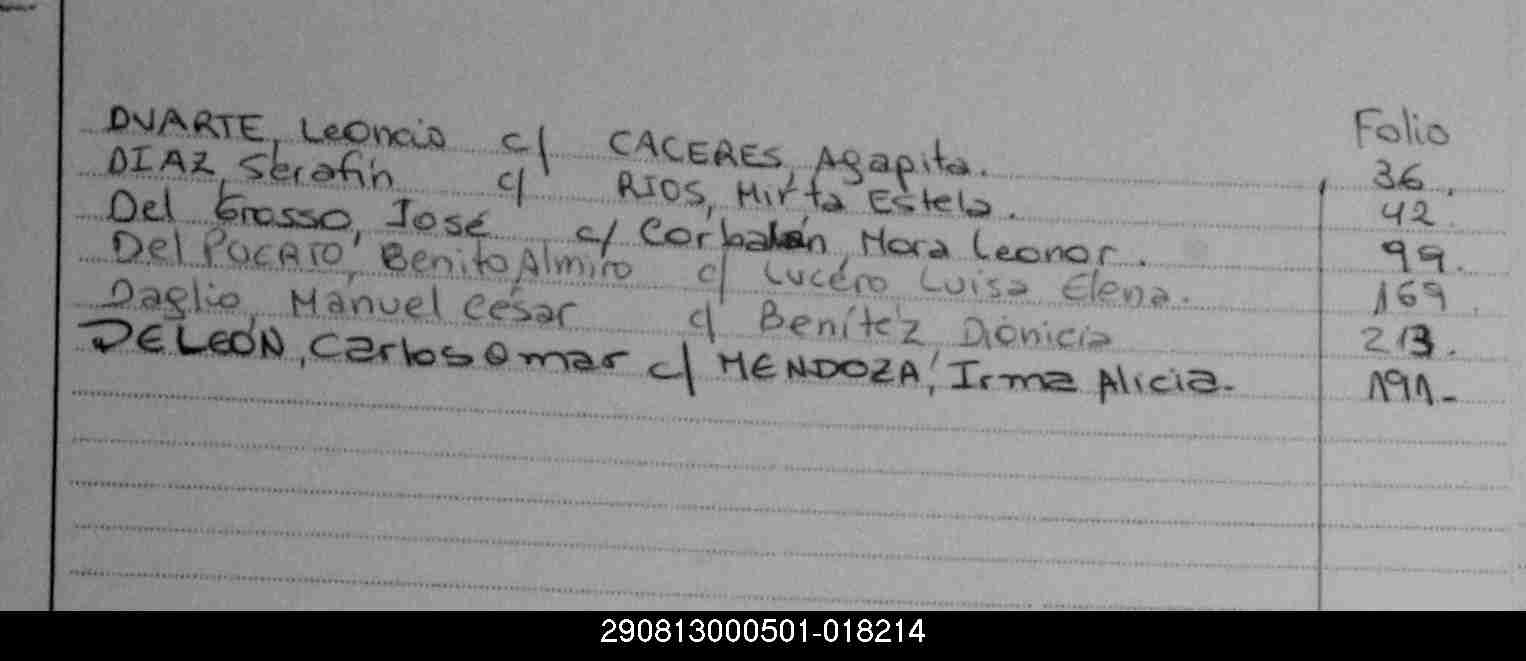 Folio
DUARTE, Leoncio c/ CACERES, Agapita. 36.
DIAZ, Serafín c/ RIOS, Mirta Estela. 42.
Del Grosso, José c/ Corbalán, Mora Leonor. 99.
Del PUCATO, Benito Almiro c/ Lucero Luisa Elena. 169.
Daglio, Manuel César c/ Benítez Dionicia 213.
DE LEÓN, Carlos Omar c/ MENDOZA, Irma Alicia. 191-
290813000501-018214